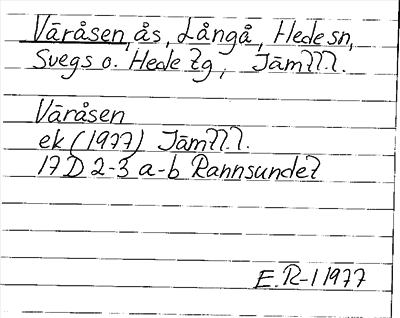 Våråsen, ås, Långå, Hede sn,
Svegs o. Hede tg, Jämtl.
Våråsen
ek (1977) Jämtl.
17D 2-3 a-b Rannsundet
E.R-l 1977